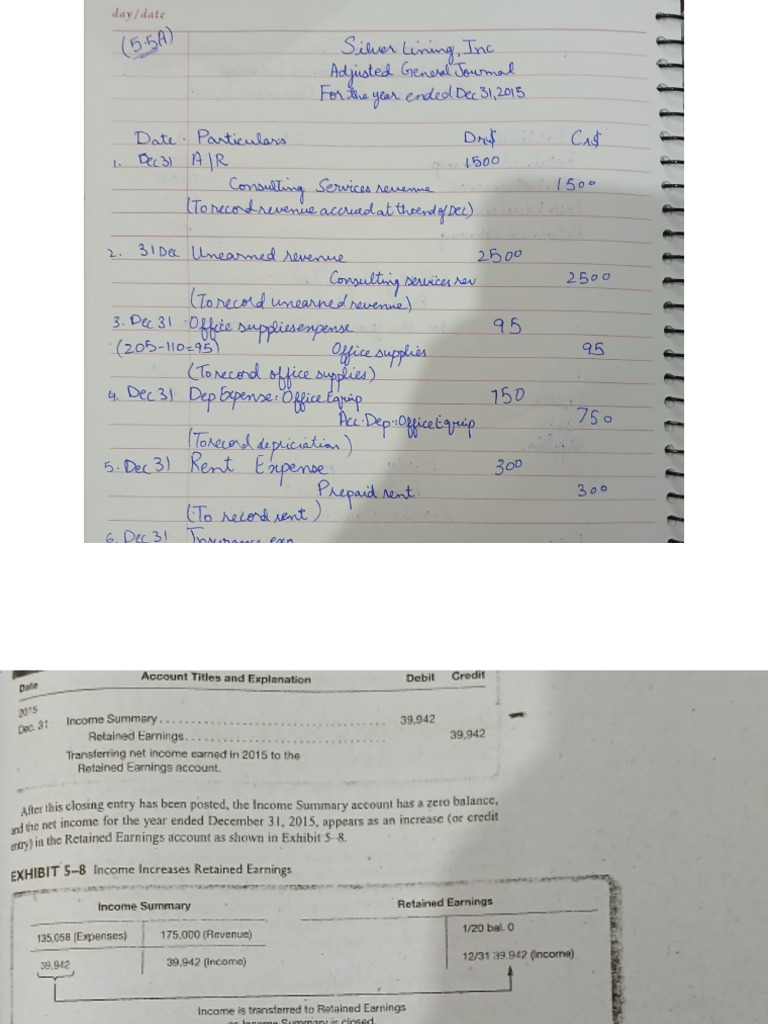 day/date
(5.5A)
Silver Lining, Inc
Adjusted General Journal
For the year ended Dec 31, 2015
Date Particulars Dr$ Cr$
1. Dec 31 A/R 1500
Consulting Services revenue 1500
(To record revenue accrued at the end of Dec)
2. 31 Dec Unearned revenue 2500
Consulting services rev 2500
(To record unearned revenue)
3. Dec 31 Office supplies expense 95
(205-110=95) Office supplies 95
(To record office supplies)
4. Dec 31 Dep Expense: Office Equip 750
Acc. Dep: Office Equip 750
(To record depriciation)
5. Dec 31 Rent Expense 300
Prepaid rent 300
(To record rent)
6. Dec 31 Insurance exp
Date Account Titles and Explanation Debit Credit
2015
Dec. 31 Income Summary 39,942
Retained Earnings 39,942
Transferring net income earned in 2015 to the
Retained Earnings account.
After this closing entry has been posted, the Income Summary account has a zero balance,
and the net income for the year ended December 31, 2015, appears as an increase (or credit
entry) in the Retained Earnings account as shown in Exhibit 5–8.
EXHIBIT 5–8 Income Increases Retained Earnings
Income Summary Retained Earnings
135,058 (Expenses) 175,000 (Revenue) 1/20 bal. 0
39,942 39,942 (Income) 12/31 39,942 (Income)
Income is transferred to Retained Earnings
as Income Summary is closed.